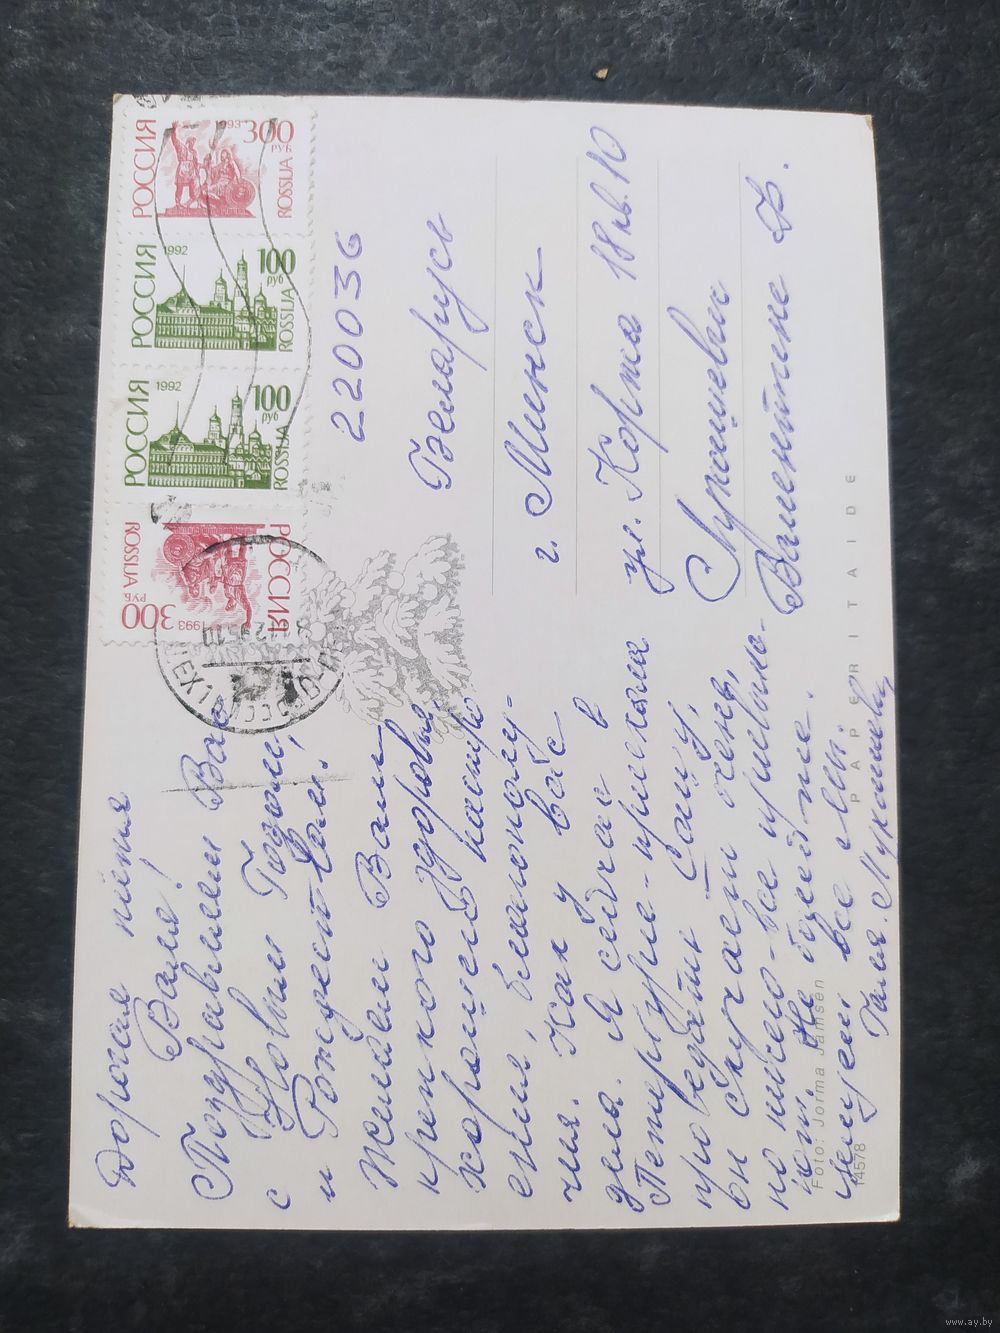 Дорогая тётя
Валя!
Поздравляем Вас
с Новым Годом,
и Рождеством!
Желаем Вам
крепкого здоровья,
хорошего настро-
ения, благополу-
чия. Как у вас
дела. Я сейчас в
Петербурге - приехала
проведать Сашу,
он скучает очень,
но ничего - все привыка-
ют. Не болейте.
Целуем все мы.
Галя.
РОССИЯ
1993
300
РУБ
ROSSIJA
РОССИЯ
1992
100
руб
ROSSIJA
РОССИЯ
1992
100
руб
ROSSIJA
РОССИЯ
1993
300
РУБ
ROSSIJA
220036
Беларусь
г. Минск
ул. Корша 18 кв. 10
Лукашевич
Валентине Ф.
PAPERITAIDE
Foto: Jorma Jämsen
14578
www.ay.by